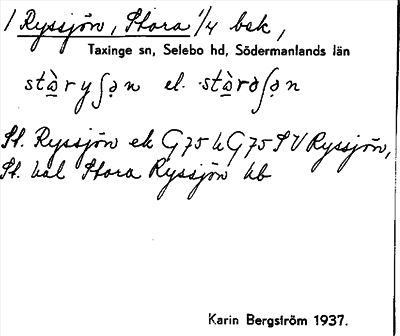 1 Ryssjön, Stora 1/4 bsk,
Taxinge sn, Selebo hd, Södermanlands län
stàryʃən el. stàrəʃən
St. Ryssjön ek G75 h G75 SV Ryssjön,
St. hal Stora Ryssjön hb
Karin Bergström 1937.